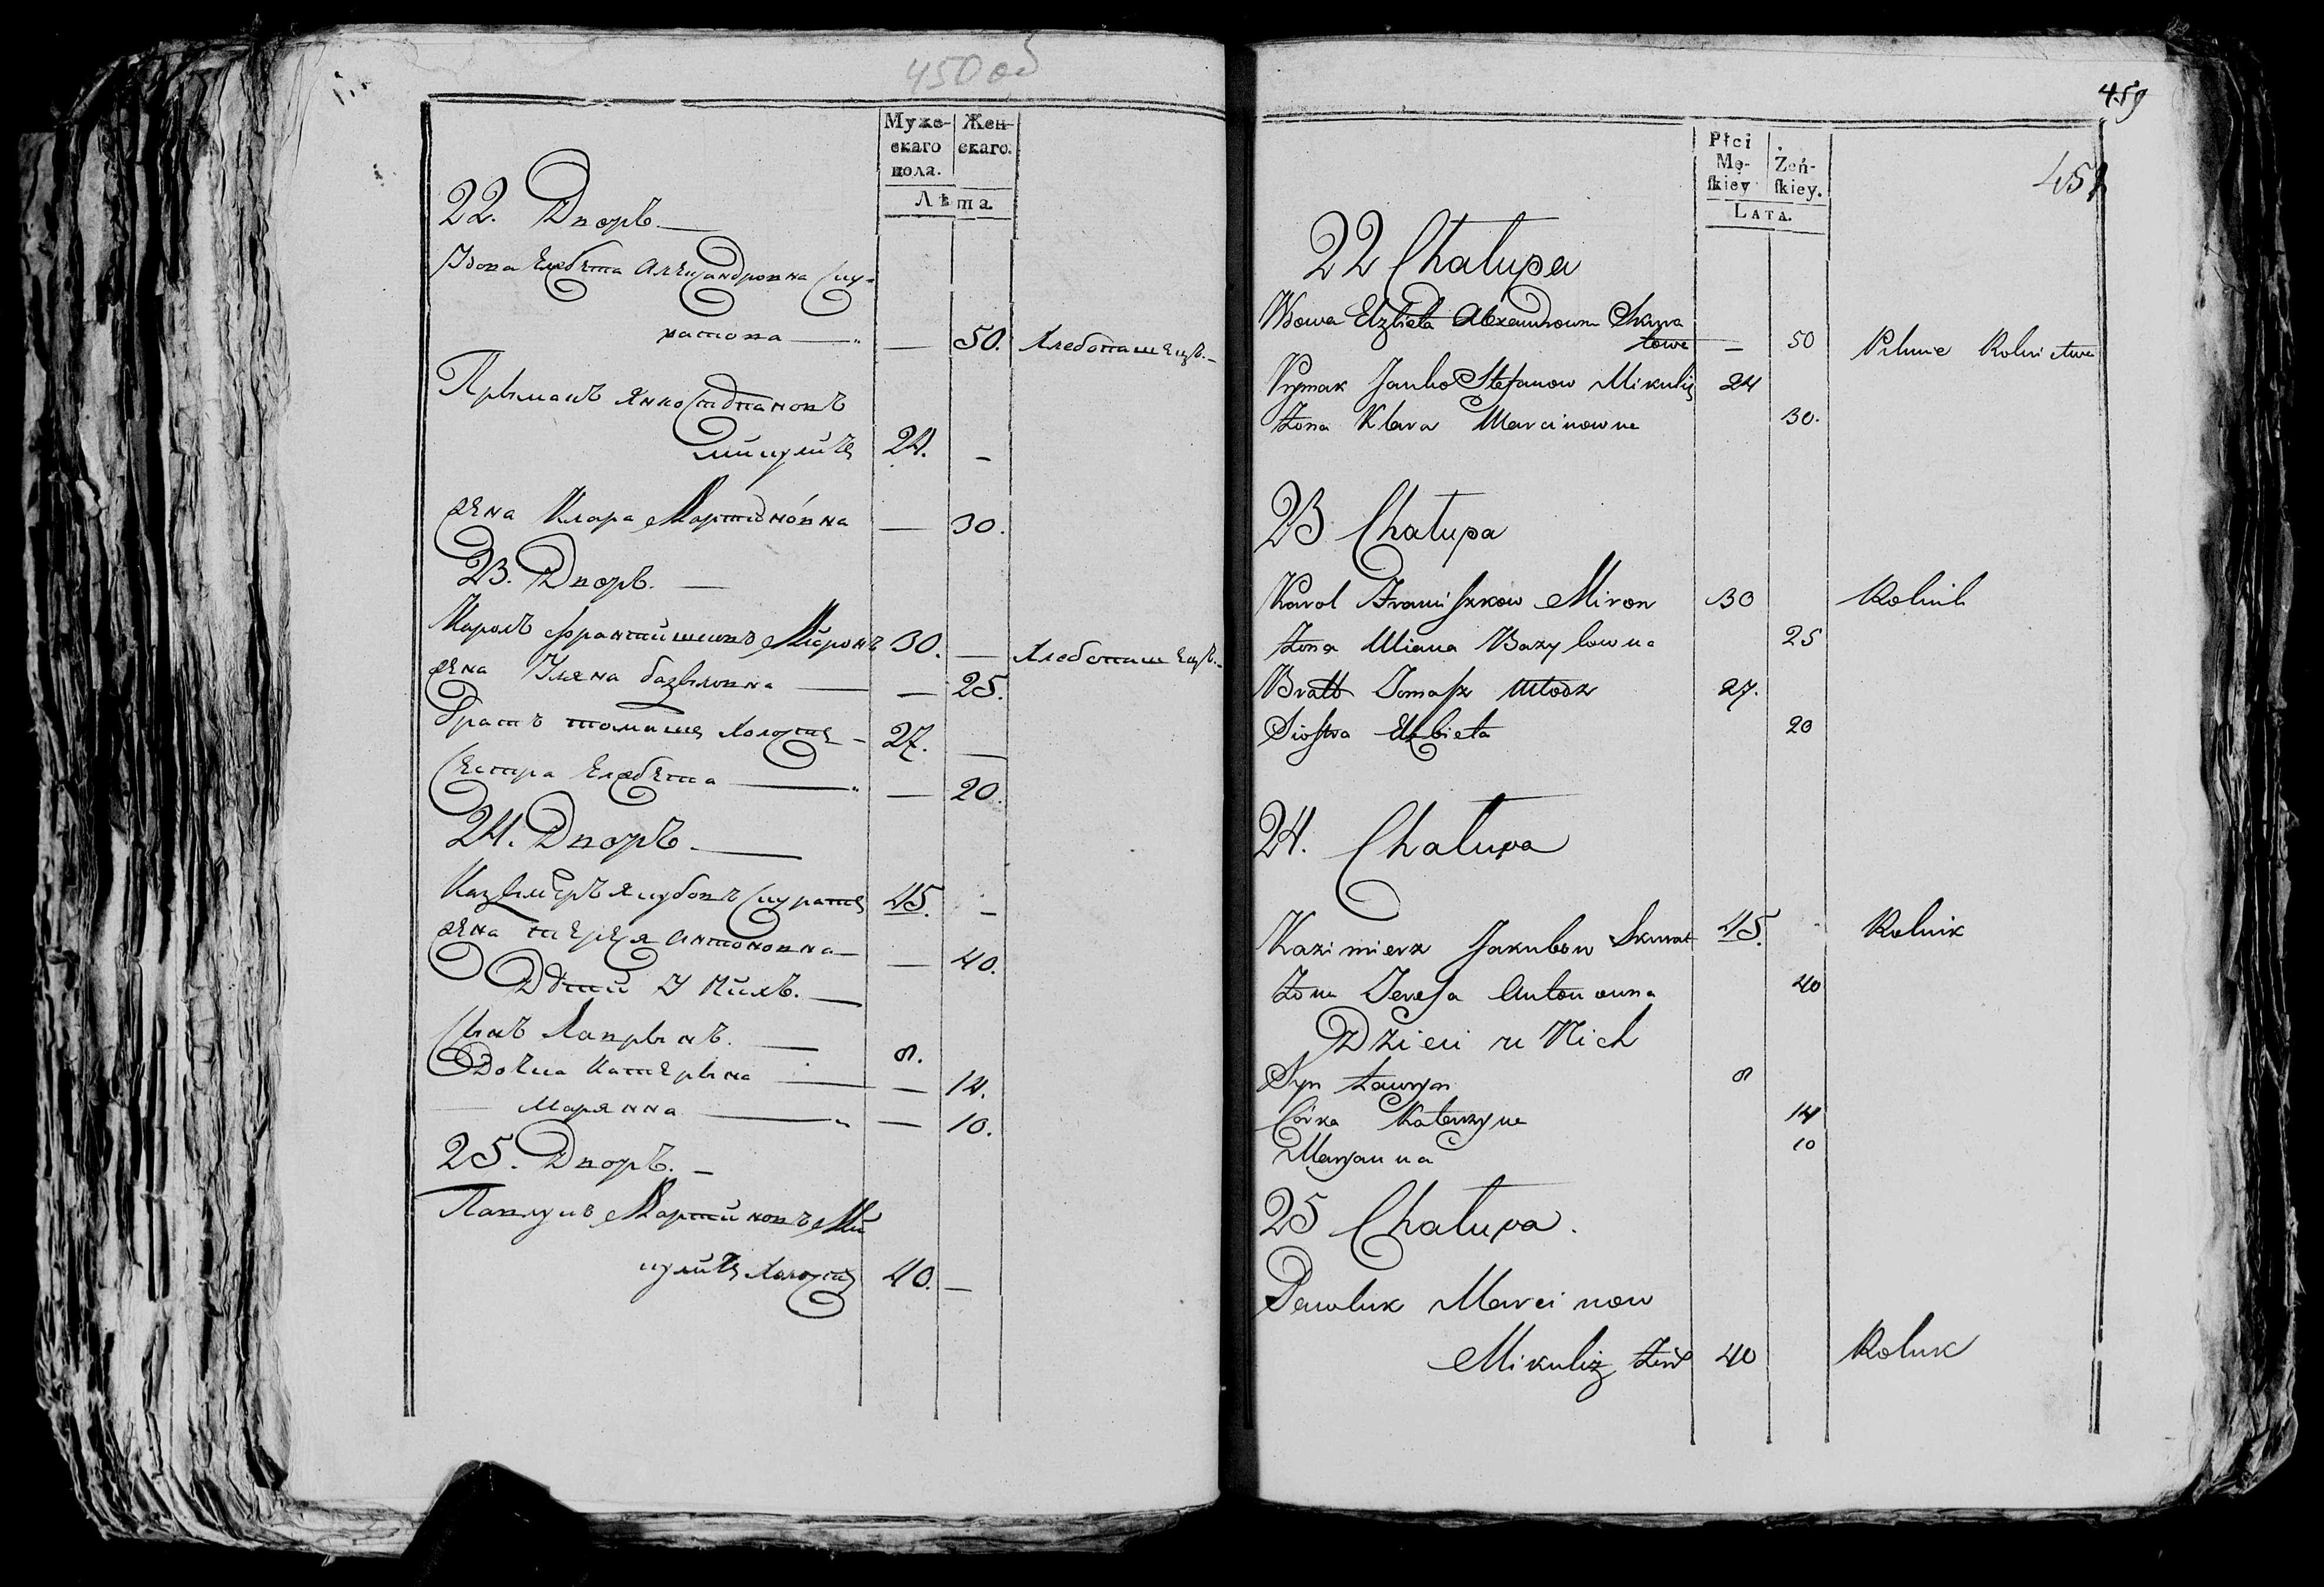 450 об
Муже- Жен-
скаго скаго.
пола.
Лѣта
22. Дворъ.
Вдова Елжбета Александровна Ску-
ратова — 50. Хлебопашецъ.
Прыманъ Янко Стэпановъ
Микулич 24. —
жена Клара Мартиновна — 30.
23. Дворъ.
Кароль Франтишковъ Миронъ 30. — Хлебопашецъ.
жена Уляна Базылювна — 25.
братъ томаш Холост 27. —
Сестра Елжбета — 20.
24. Дворъ.
Казымеръ Якубовъ Скурат 45. —
жена Тереза Антоновна — 40.
Дэти У Нихъ.
Сынъ Лаврынъ. 8.
Дочка Катерына — 14.
Марянна — 10.
25. Дворъ.
Павлукъ Мартиновъ Ми
кулич Холост 40. —
459
451
Płci
Mę- Żeń-
ſkiey ſkiey.
Lata.
22 Chałupa
Wdowa Elzbieta Alexandrowna Skura
towa — 50 Pilnuie Rolnictwa
Prymak Janko Stefanow Mikulicz 24
Żona Klara Marcinowna 30.
23 Chałupa
Karol Franciſzkow Miron 30 Rolnik
Żona Uliana Bazylowna 25
Bratt Tomaſz Młodz 27.
Sioſtra Elzbieta 20
24. Chałupa
Kazimierz Jakubow Skurat 45. Rolnik
Żona Tereſa Antonowna 40
Dzieci u Nich
Syn Ławryn 8
Córka Katerzyna 14
Maryanna 10
25 Chałupa.
Pawluk Marcinow
Mikulicz 40 Rolnik